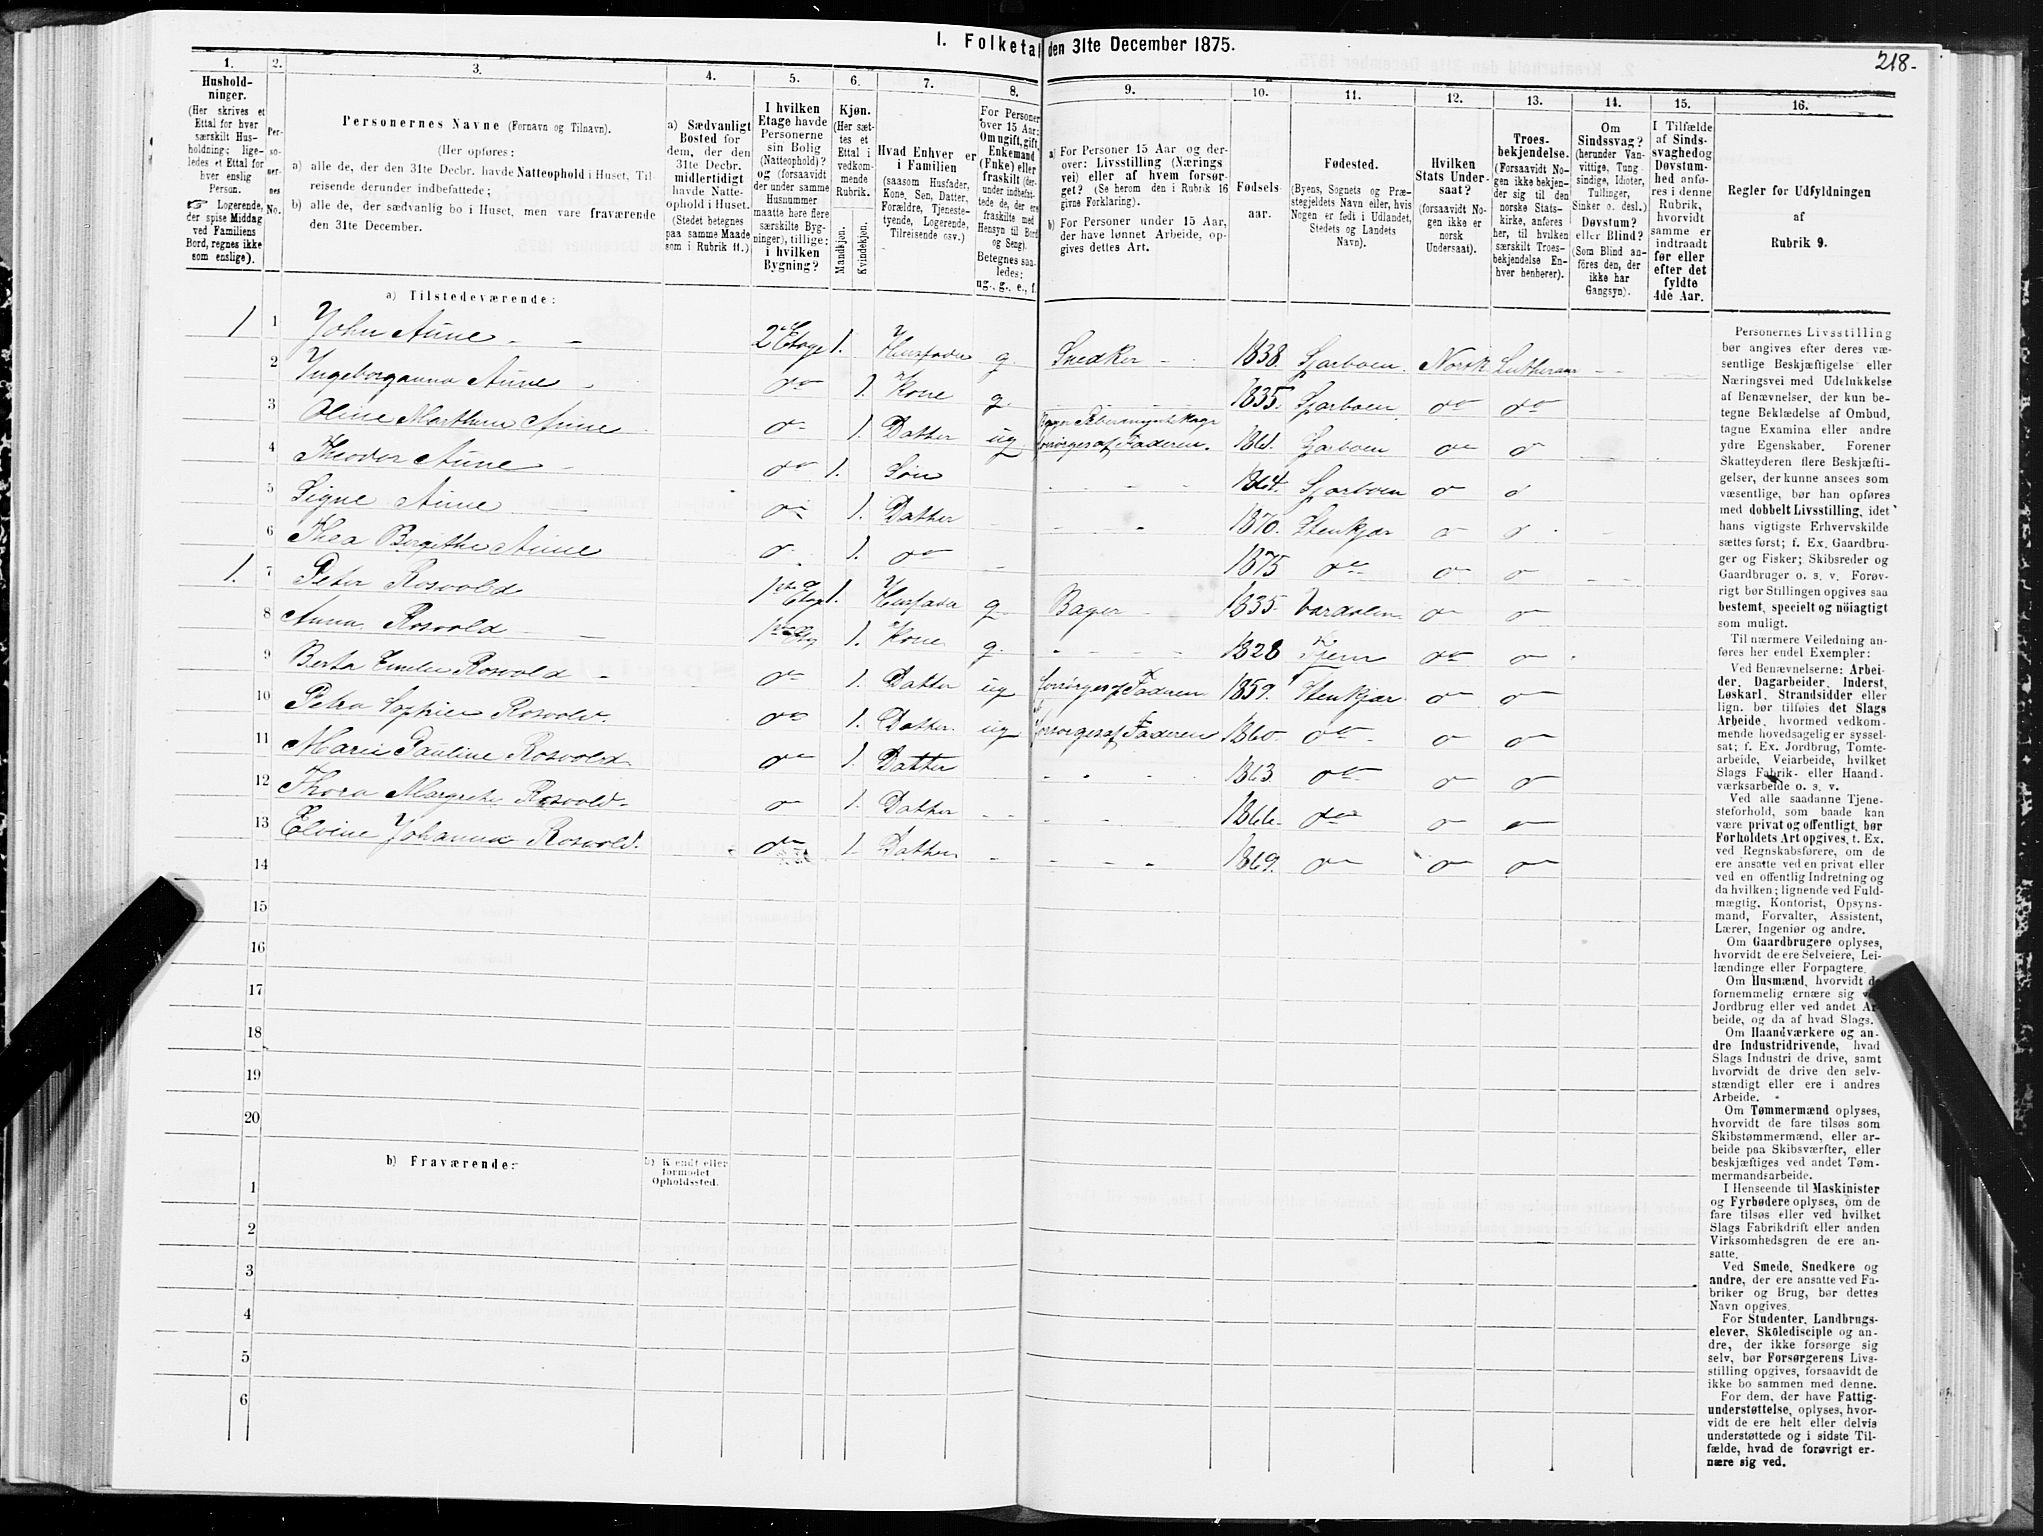 I. Folketal den 31te December 1875.
218.
1.
2.
3.
4.
5.
6.
7.
8.
9.
10.
11.
12.
13.
14.
15.
16.
Hushold-
ninger.
(Her skrives et
Ettal for hver
særskilt Hus-
holdning; lige-
ledes et Ettal for
hver enslig
Person.
☞ Logerende,
der spise Middag
ved Familiens
Bord, regnes ikke
som enslige).
Per-
so-
ner-
nes
No.
Personernes Navne (Fornavn og Tilnavn).
(Her opføres:
a) alle de, der den 31te Decbr. havde Natteophold i Huset, Til-
reisende derunder indbefattede;
b) alle de, der sædvanlig bo i Huset, men vare fraværende
den 31te December.
a) Sædvanligt
Bosted for
dem, der den
31te Decbr.
midlertidigt
havde Natte-
ophold i Huset.
(Stedet betegnes
paa samme Maade
som i Rubrik 11.)
I hvilken
Etage havde
Personerne
sin Bolig
(Natteophold)?
og (forsaavidt
der under samme
Husnummer
maatte høre flere
særskilte Byg-
ninger), tillige:
i hvilken
Bygning?
Kjøn.
(Her sæt-
tes et
Ettal i
vedkom-
mende
Rubrik.
Mandkjøn.
Kvindekjøn.
Hvad Enhver er
i Familien
(saasom Husfader,
Kone, Søn, Datter,
Forældre, Tjeneste-
tyende, Logerende,
Tilreisende osv.)
For Personer
over 15 Aar:
Om ugift, gift,
Enkemand
(Enke) eller
fraskilt (der-
under indbefat-
tede de, der ere
fraskilte med
Hensyn til Bord
og Seng).
Betegnes saa-
ledes:
ug., g., e., f.
a) For Personer 15 Aar og der-
over: Livsstilling (Nærings
vei) eller af hvem forsør-
get? (Se herom den i Rubrik 16
givne Forklaring).
b) For Personer under 15 Aar,
der have lønnet Arbeide, op-
gives dettes Art.
Fødsels-
aar.
Fødested.
(Byens, Sognets og Præ-
stegjeldets Navn eller, hvis
Nogen er født i Udlandet,
Stedets og Landets
Navn).
Hvilken
Stats Under-
saat?
(forsaavidt No-
gen ikke er
norsk
Undersaat).
Troes-
bekjendelse.
(Forsaavidt No-
gen ikke bekjen-
der sig til den
norske Stats-
kirke, anføres
her, til hvilken
særskilt Troes-
bekjendelse En-
hver henhører).
Om
Sindssvag?
(herunder Van-
vittige, Tung-
sindige, Idioter,
Tullinger,
Sinker o. desl.)
Døvstum?
eller Blind?
(Som Blind an-
føres den, der
ikke har
Gangsyn).
I Tilfælde
af Sinds-
svaghed og
Døvstum-
hed anfø-
res i denne
Rubrik,
hvorvidt
samme er
indtraadt
før eller
efter det
fyldte
4de Aar.
Regler for Udfyldningen
af
Rubrik 9.
a) Tilstedeværende:
1 1 John Aune 2 Etage 1. Husfader g Snedker 1838. Sparboen. Norsk Lutheraner
2 Ingeborganna Aune do 1. Kone g. 1835. Sparboen do do
3 Oline Marthine Aune do 1. Datter ug forsørges af Faderen. 1861. Sparboen do do
4 Theodor Aune do 1. Søn 1864. Sparboen do do
5 Signe Aune do 1. Datter 1870. Stenkjær do do
6 Thea Bergithe Aune do 1. do 1875 do do do
1. 7 Peter Rosvold 1ste Etage 1. Husfader g. Bager 1835. Værdalen do do
8 Anna Rosvold 1ste Etg 1. Kone g. 1828 do do
9 Berta Emelie Rosvold do 1. Datter ug forsørges af Faderen 1859. Stenkjær do do
10 Petra Sophie Rosvold. do 1. Datter ug forsørges af Faderen 1860. do do do
11 Marie Pauline Rosvold do 1. Datter 1863. do do do
12 Thora Margrete Rosvold do 1. Datter 1866. do do do
13 Elvine Johanna Rosvold. do 1. Datter 1869. do do do
14
15
16
17
18
19
20
b) Fraværende:
b) Kjendt eller
formodet
Opholdssted.
1
2
3
4
5
6
Personernes Livsstilling
bør angives efter deres væ-
sentlige Beskjæftigelse eller
Næringsvei med Udelukkelse
af Benævnelser, der kun be-
tegne Beklædelse af Ombud,
tagne Examina eller andre
ydre Egenskaber. Forener
Skatteyderen flere Beskjæfti-
gelser, der kunne ansees som
væsentlige, bør han opføres
med dobbelt Livsstilling, idet
hans vigtigste Erhvervskilde
sættes først; f. Ex. Gaardbru-
ger og Fisker; Skibsreder og
Gaardbruger o. s. v. Forøv-
rigt bør Stillingen opgives saa
bestemt, specielt og nöiagtigt
som muligt.
Til nærmere Veiledning an-
føres her endel Exempler:
Ved Benævnelserne: Arbei-
der, Dagarbeider, Inderst,
Løskarl, Strandsidder eller
lign. bør tilføies det Slags
Arbeide, hvormed vedkom-
mende hovedsagelig er syssel-
sat; f. Ex. Jordbrug, Tomte-
arbeide, Veiarbeide, hvilket
Slags Fabrik- eller Haand-
værksarbeide o. s. v.
Ved alle saadanne Tjene-
steforhold, som baade kan
være privat og offentligt, bør
Forholdets Art opgives, t. Ex.
ved Regnskabsførere, om de
ere ansatte ved en privat eller
ved en offentlig Indretning og
da hvilken; lignende ved Fuld-
mægtig, Kontorist, Opsyns-
mand, Forvalter, Assistent,
Lærer, Ingeniør og andre.
Om Gaardbrugere oplyses,
hvorvidt de ere Selveiere, Lei-
lændinge eller Forpagtere.
Om Husmænd, hvorvidt de
fornemmelig ernære sig ved
Jordbrug eller ved andet Ar-
beide, og da af hvad Slags.
Om Haandværkere og an-
dre Industridrivende, hvad
Slags Industri de drive, samt
hvorvidt de drive den selv-
stændigt eller ere i andres
Arbeide.
Om Tømmermænd oplyses,
hvorvidt de fare tilsøs som
Skibstømmermænd, eller ar-
beide paa Skibsværfter, eller
beskjæftiges ved andet Tøm-
mermandsarbeide.
I Henseende til Maskinister
og Fyrbødere oplyses, om de
fare tilsøs eller ved hvilket
Slags Fabrikdrift eller anden
Virksomhedsgren de ere an-
satte.
Ved Smede, Snedkere og
andre, der ere ansatte ved Fa-
briker og Brug, bør dettes
Navn opgives.
For Studenter, Landbrugs-
elever, Skoledisciple og an-
dre, der ikke forsørge sig
selv, bør Forsørgerens Livs-
stilling opgives, forsaavidt de
ikke bo sammen med denne.
For dem, der have Fattig-
understøttelse, oplyses, hvor-
vidt de ere helt eller delvis
understøttede og i sidste Til-
fælde, hvad de forøvrigt er-
nære sig ved.